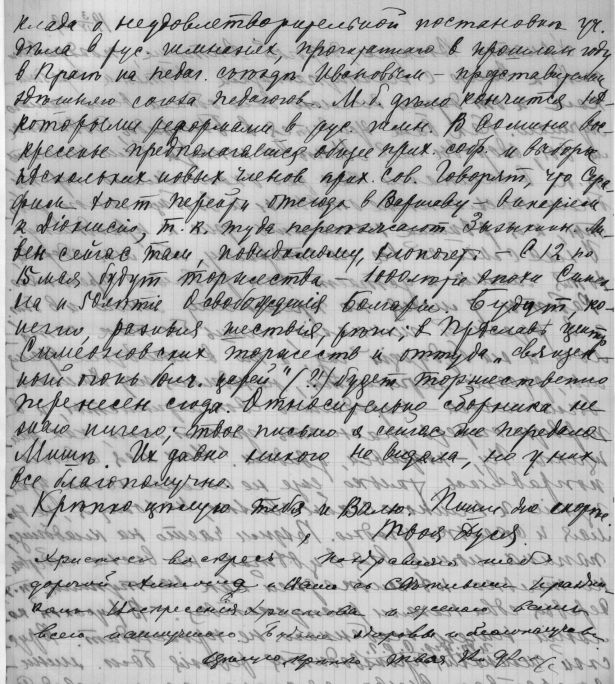 клада о неудовлетворительной постановкѣ уч.
дѣла в рус. гимназіях, прочитаннаго в прошлом году
в Прагѣ на педаг. съѣздѣ Ивановым – представителем
здѣшняго союза педагогов. М. б. дѣло кончится нѣ-
которыми реформами в рус. гимн. В Вос-
кресенье предполагавшееся общее прих. собр. и выборы
нѣскольких новых членов прих. сов. Говорят, что Сера-
фим хочет перейти отсюда в Варшаву –
к Діонисію, т. к. туда
сейчас там, повидимому, хлопочет. – С 12 по
15 мая будут торжества 1000лѣтія эпохи Симео-
на и 50лѣтія Освобожденія Болгаріи. Будут, ко-
нечно, разныя шествія, рѣчи; в Преславѣ центр
Симеоновских торжеств и оттуда „священ-
ный огонь болг. царей" (?!) будет торжественно
перенесен сюда. Относительно сборника не
знаю ничего; твое письмо я сейчас же передала
Мишѣ. Их давно никого не видала, но у них
все благополучно.
Крѣпко цѣлую тебя и Валю. Пиши скорѣе
Твоя
Христос воскресе поздравляю тебя
дорогой и Валю со Свѣтлым Праздни-
ком Воскресенія Христова и желаю вам
всего наилучшаго здоровья и благополучія
Цѣлую крѣпко твоя